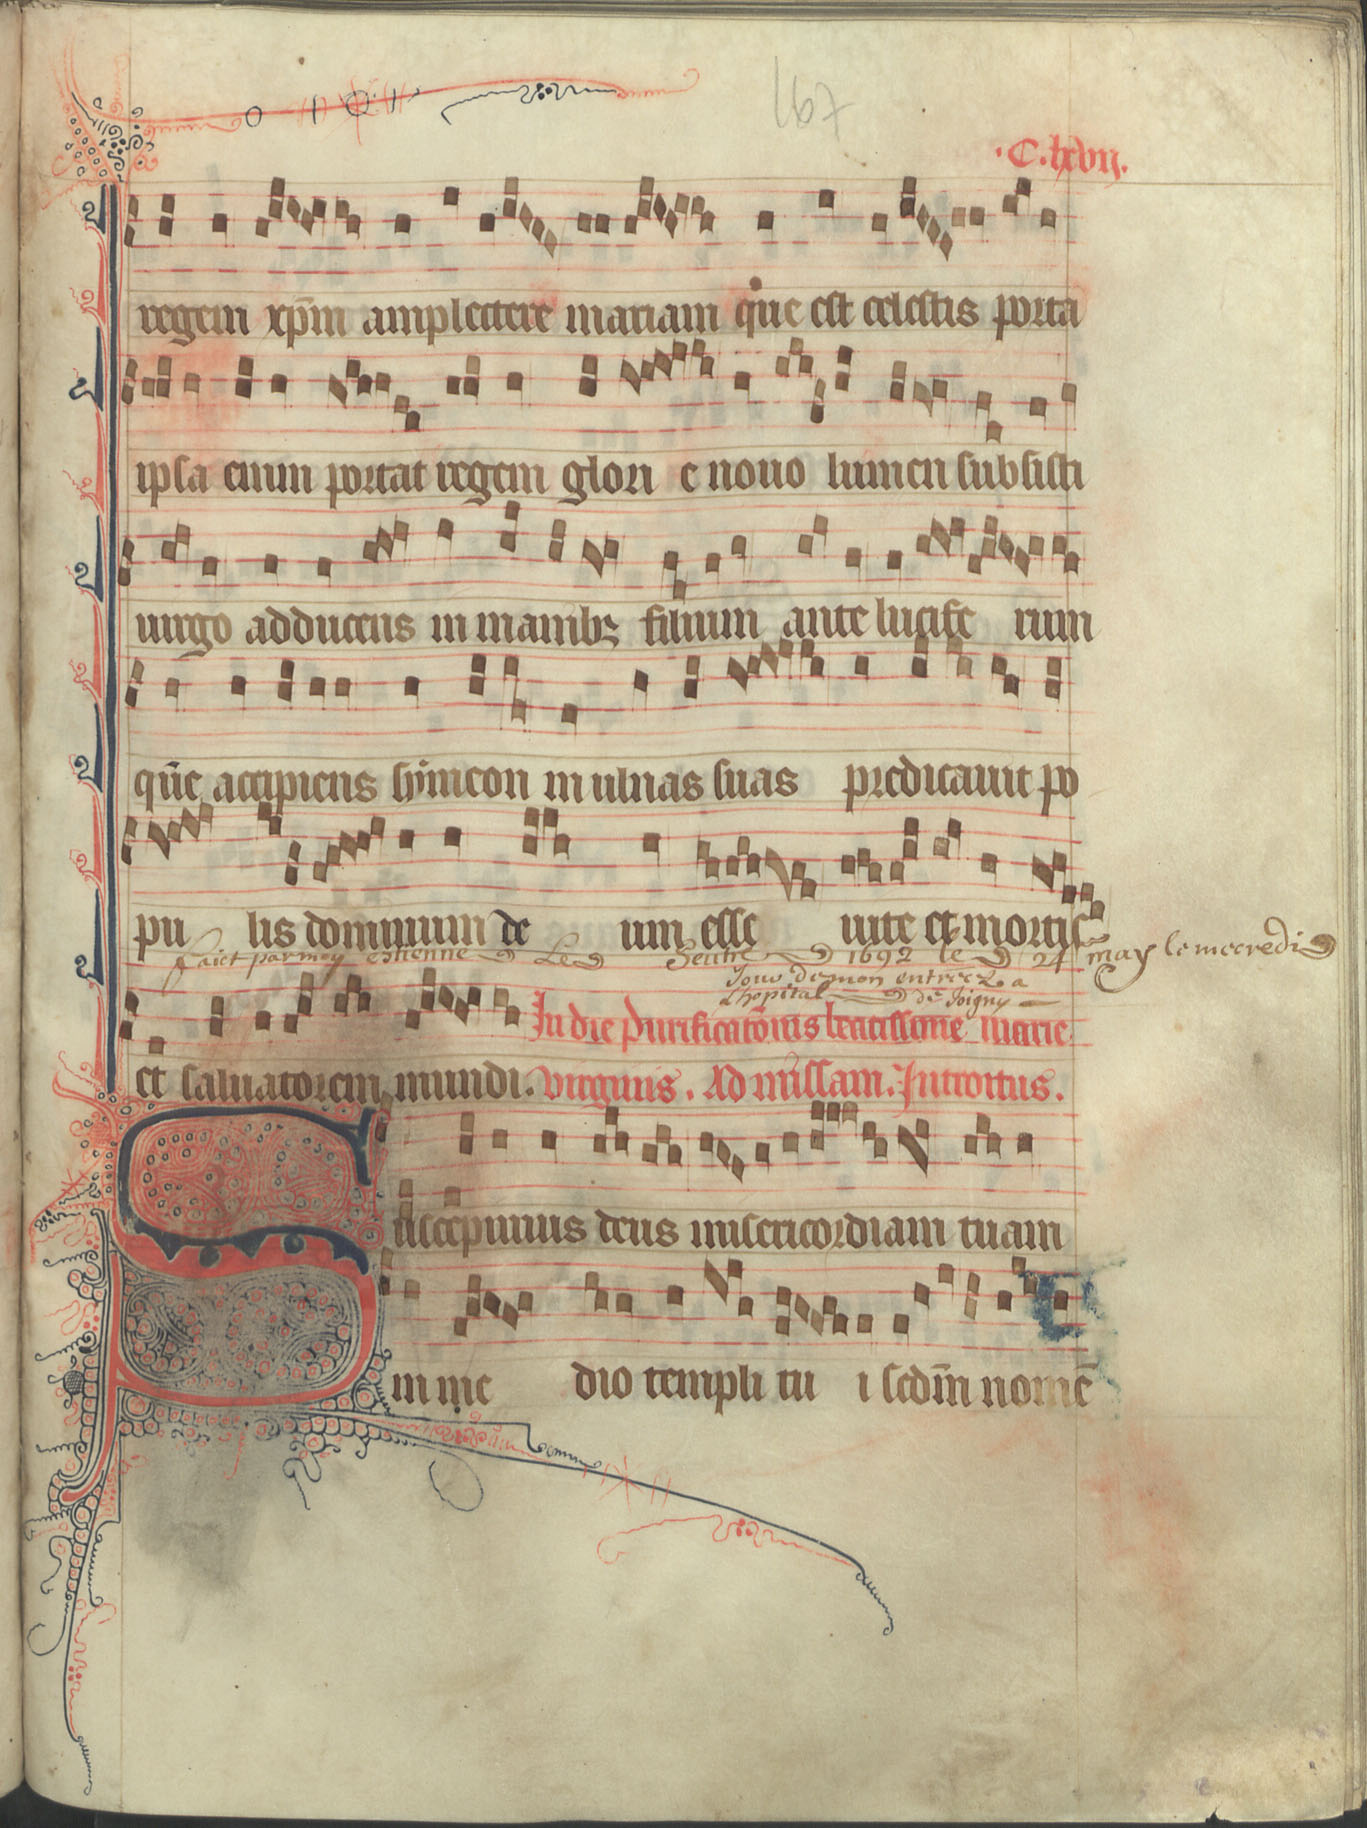 167
.C.lxvii.
regem xp̄m amplectere mariam que est celestis porta
ipsa enim portat regem glori e nouo lumen subsisti
uirgo adducens in manibꝫ filium ante lucife rum
quē accipiens symeon in ulnas suas predicauit po
pu lis dominum de um esse uite et mortis
faict par moy estienne Le 1692 le 24 may le mecredi
Jour de mon entreez a
Lhopital de Joigny
In die purificatōnis beatissime marie
et saluatorem mundi. uirginis. Ad missam. Introitus.
Suscepimus deus misericordiam tuam
in me dio templi tu i scdm̄ nomē